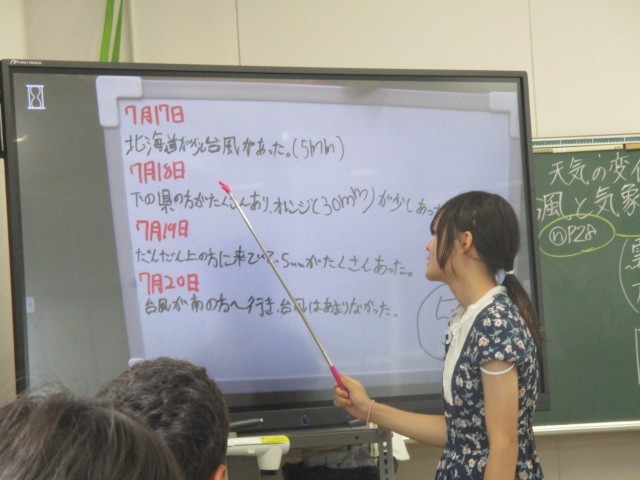 7月17日
北海道がが台風があった。(5mm)
7月18日
下の県の方がたくさんあり、オレンジ(30mm)が少しあっ
7月19日
だんだん上の方に来ていて、5mmがたくさんあった。
7月20日
台風が南の方へ行き、台風はあまりなかった。
天気の変化
風と気象
P28